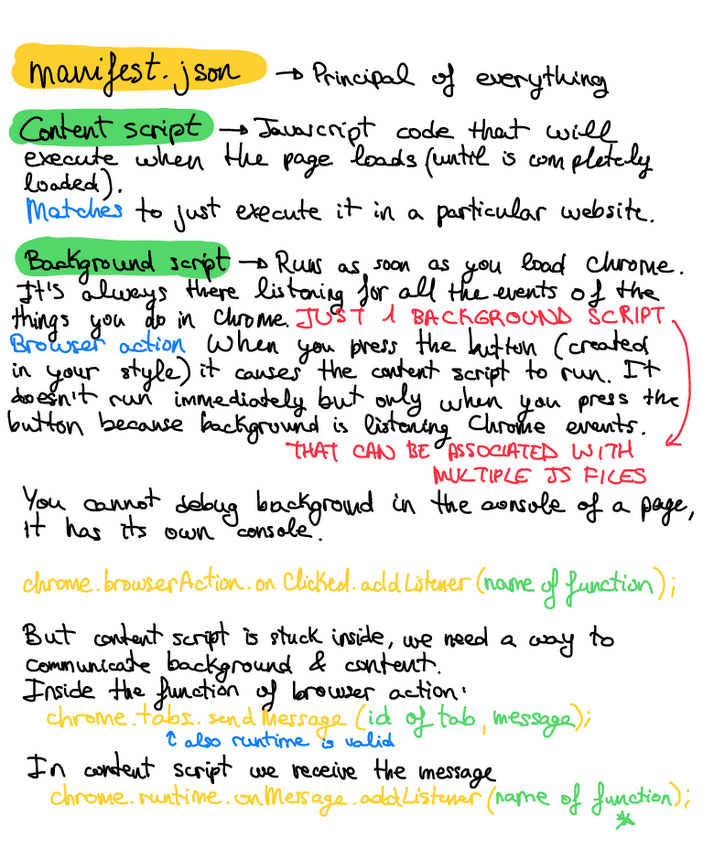 manifest.json → Principal of everything
Content script → Javascript code that will
execute when the page loads (until is completely
loaded).
Matches to just execute it in a particular website.
Background script → Runs as soon as you load Chrome.
It's always there listening for all the events of the
things you do in Chrome. JUST 1 BACKGROUND SCRIPT
Browser action When you press the button (created
in your style) it causes the content script to run. It
doesn't run immediately but only when you press the
button because background is listening Chrome events.
THAT CAN BE ASSOCIATED WITH
MULTIPLE JS FILES
You cannot debug background in the console of a page,
it has its own console.
chrome.browserAction.onClicked.addListener(name of function);
But content script is stuck inside, we need a way to
communicate background & content.
Inside the function of browser action:
chrome.tabs.sendMessage(id of tab, message);
↑ also runtime is valid
In content script we receive the message
chrome.runtime.onMessage.addListener(name of function);
*